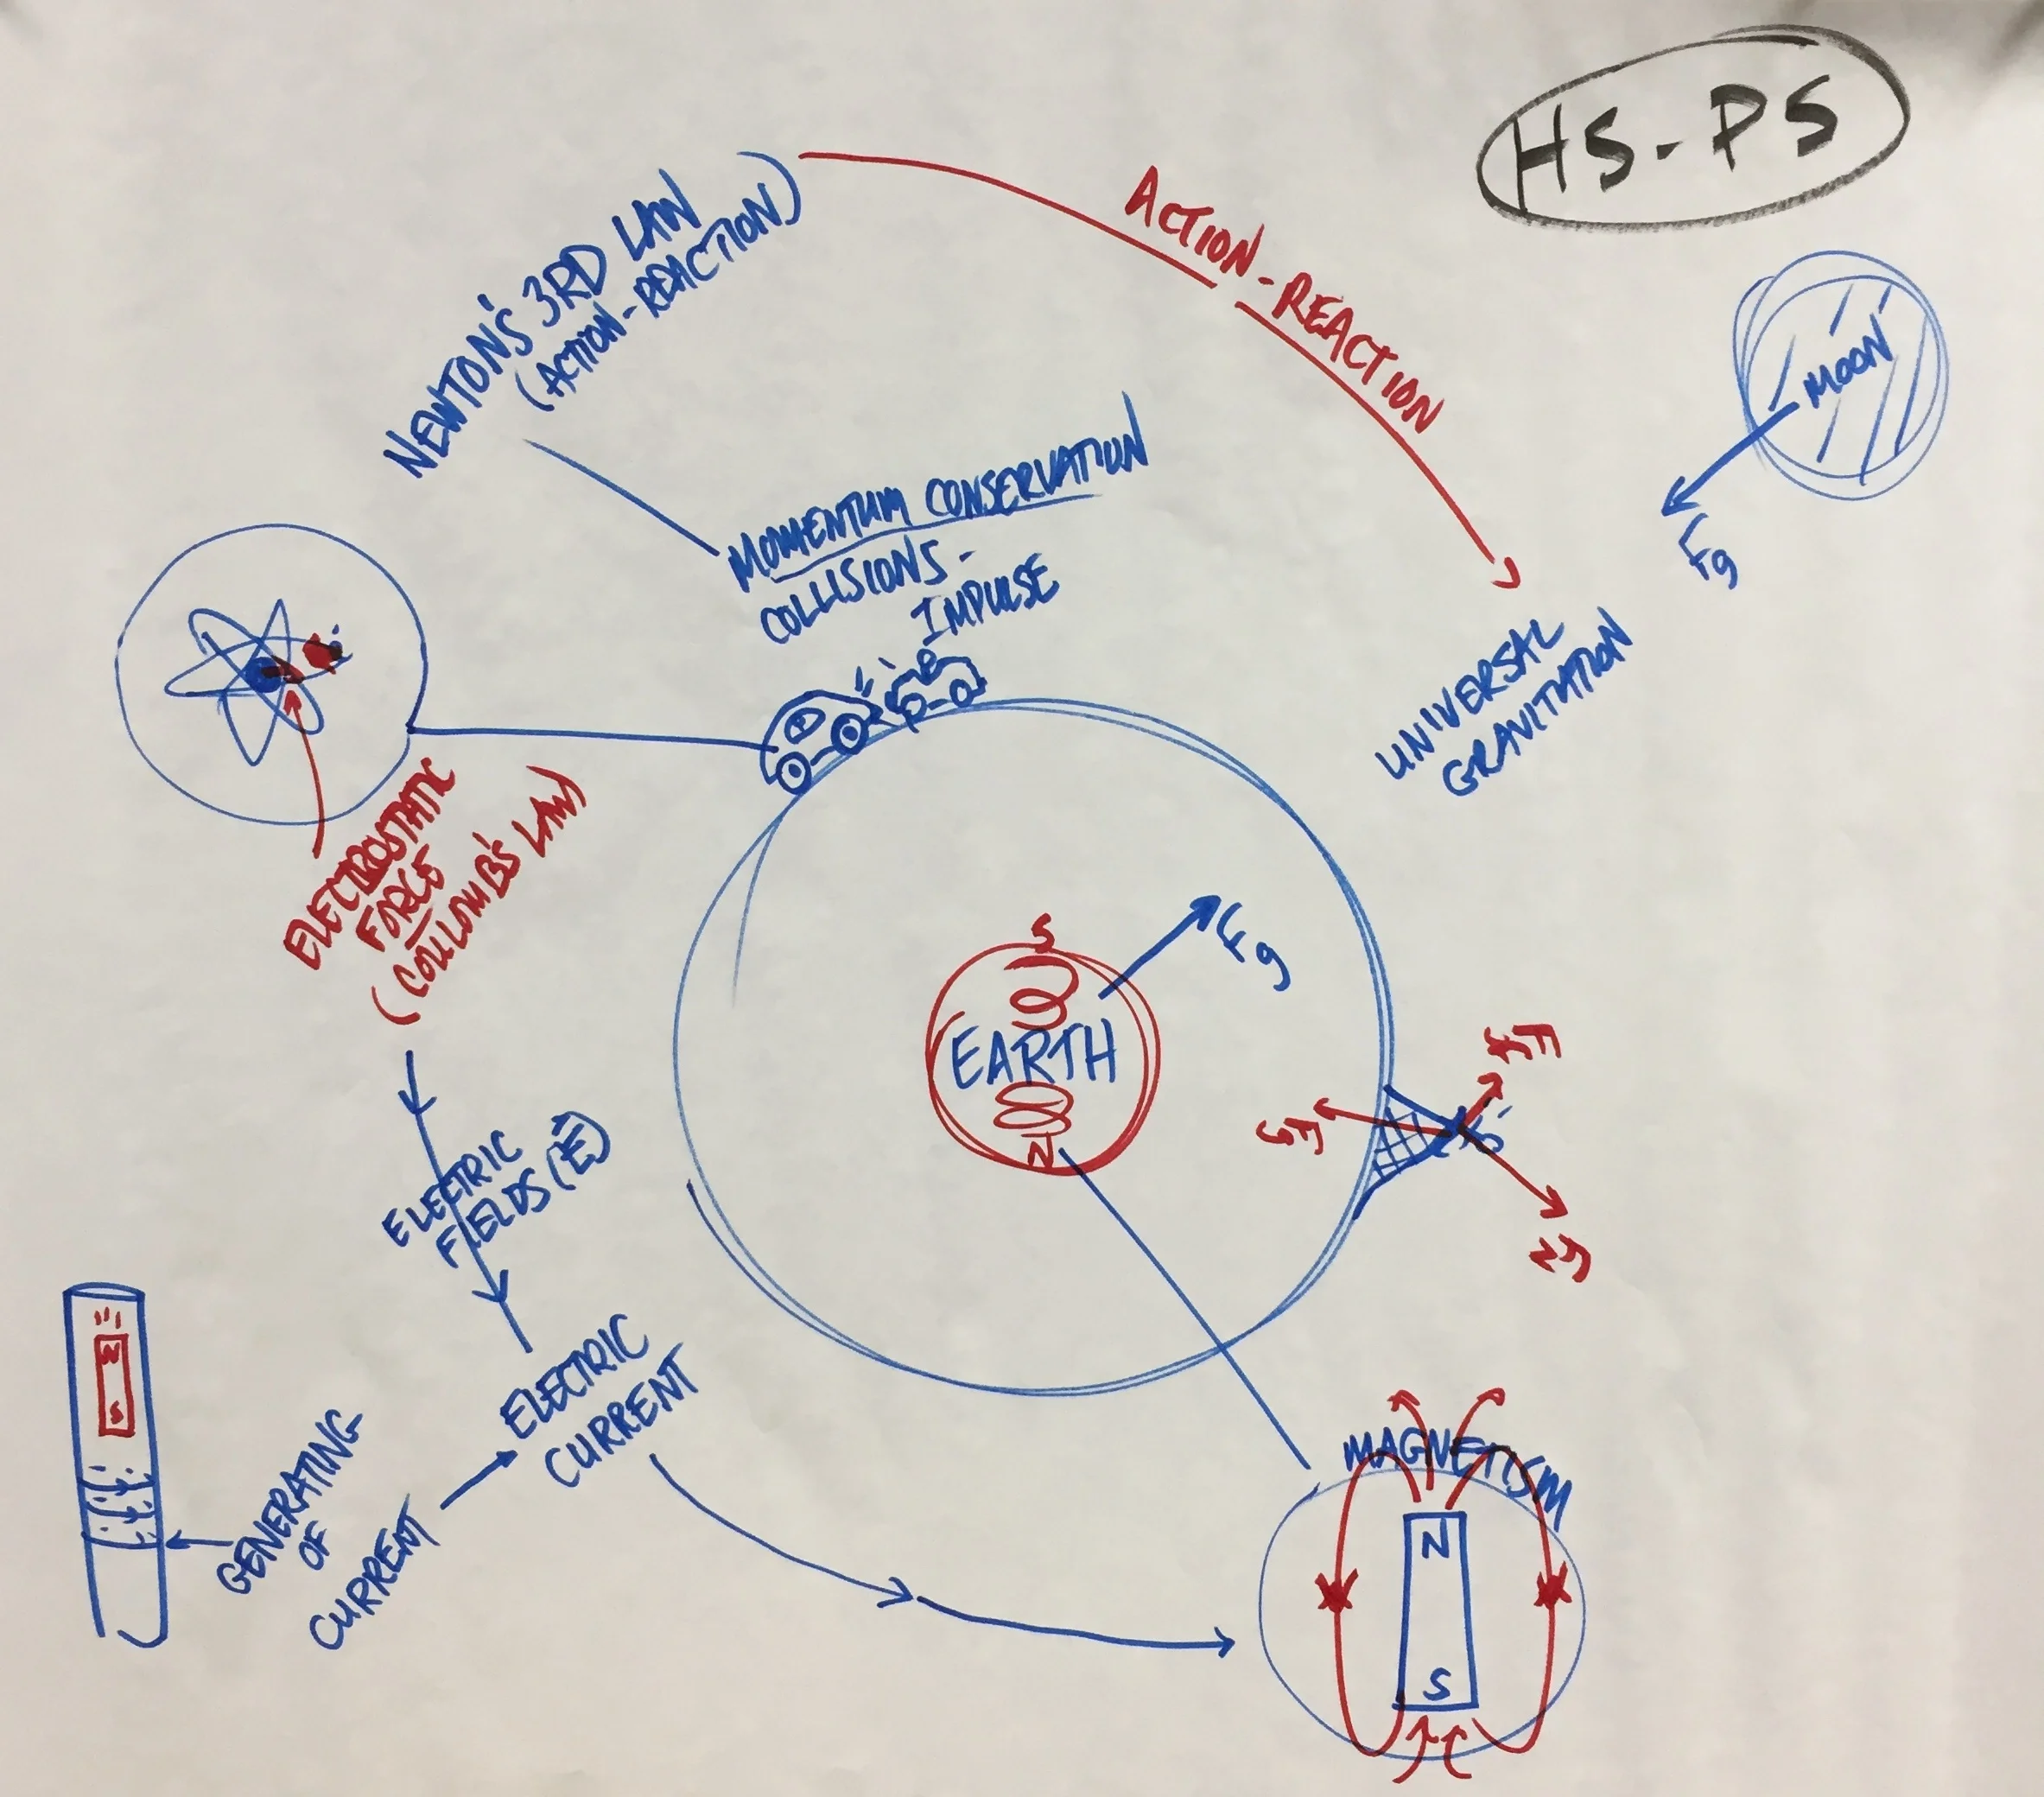 HS-PS
NEWTON'S 3RD LAW
(ACTION-REACTION)
ACTION-REACTION
MOON
Fg
MOMENTUM CONSERVATION
COLLISIONS-
IMPULSE
UNIVERSAL
GRAVITATION
ELECTROSTATIC
FORCE
(COULOMB'S LAW)
S
EARTH
N
Fg
Ff
Fg
FN
ELECTRIC
FIELDS (E)
N
S
ELECTRIC
CURRENT
GENERATING
OF
CURRENT
MAGNETISM
N
S